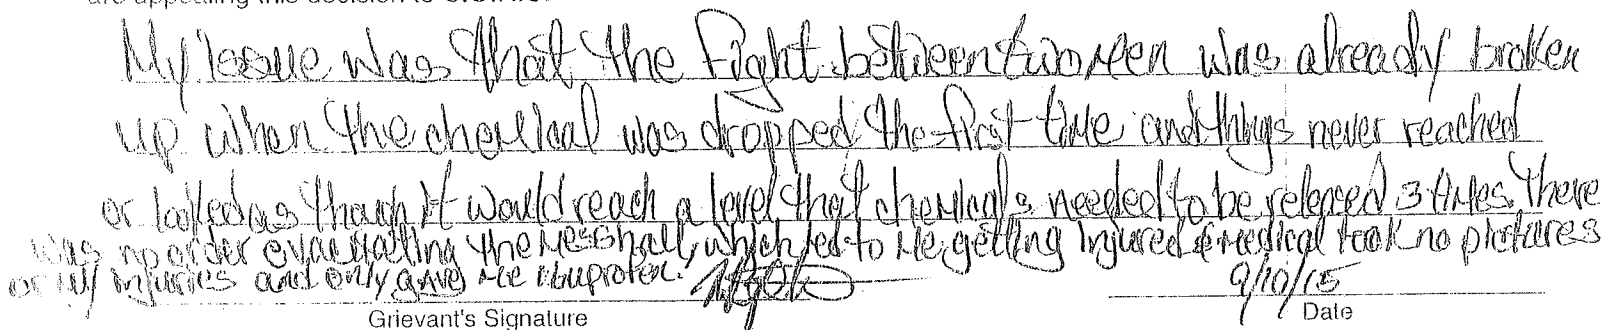 My issue was that the fight between two men was already broken
up when the chemical was dropped the first time and things never reached
or looked as though it would reach a level that chemicals needed to be released 3 times. There
was no order evacuating the Messhall, which led to me getting injured & medical took no pictures
of my injuries and only gave me Ibuprofen.
9/10/15
Grievant's Signature
Date